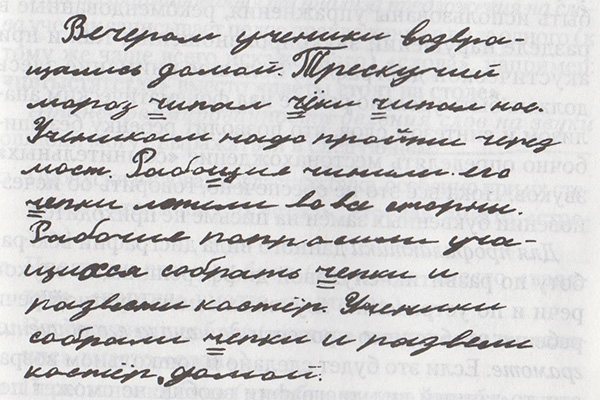 Вечерам ученики возвра-
щались домой. Трескучий
мороз чипал чеки чипал нос.
Ученикам надо пройти через
мост. Рабочие чинили его
чепки летили во все сторо
Рабочие попрасили уча-
щихся собрать чепки и
развели костёр. Ученики
собрали чепки и развели
костёр домой.